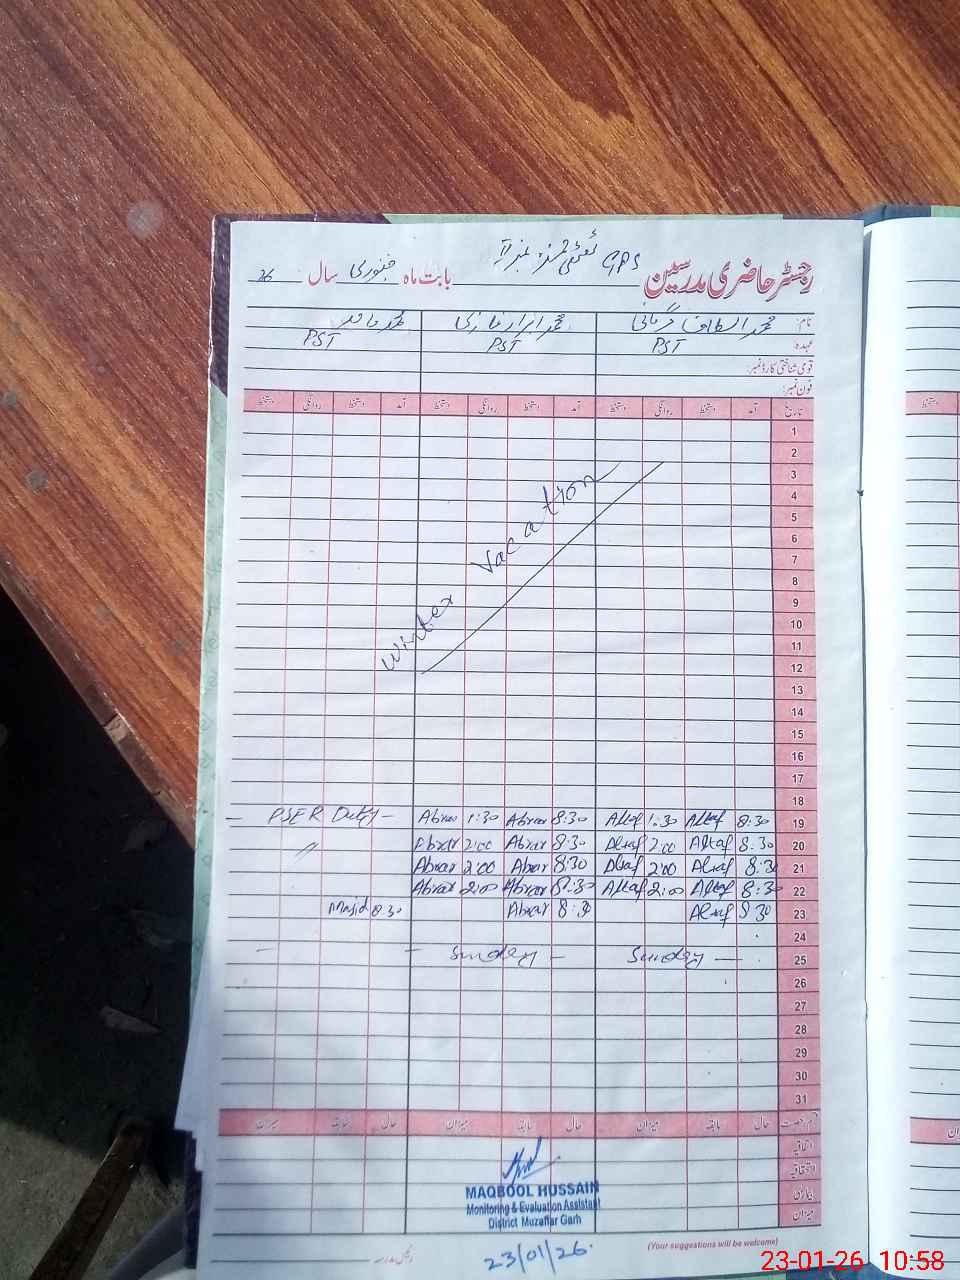 GPS
رجسٹر حاضری مدرسین بابت ماہ جنوری سال 26
نام: محمد الطاف گرمانی محمد ابرار غازی محمد ماجد
عہدہ: PST PST PST
قومی شناختی کارڈ نمبر:
فون نمبر:
تاریخ آمد دستخط روانگی دستخط آمد دستخط روانگی دستخط آمد دستخط روانگی دستخط
1
2
3
4
5
6
7
8
9
10
11
12
13
14
15
16
17
18
Winter Vacation
— PSER Duty — Abrar 1:30 Abrar 8:30 Altaf 1:30 Altaf 8:30 19
〃 Abrar 2:00 Abrar 8:30 Altaf 2:00 Altaf 8:30 20
Abrar 2:00 Abrar 8:30 Altaf 2:00 Altaf 8:30 21
Abrar 2:00 Abrar 8:30 Altaf 2:00 Altaf 8:30 22
Majid 8:30 Abrar 8:30 Altaf 8:30 23
24
— — Sunday — Sunday — 25
26
27
28
29
30
31
قسم رخصت حال سابقہ میزان حال سابقہ میزان حال سابقہ میزان
اتفاقیہ
استحقاقیہ
بیماری
میزان
MAQBOOL HUSSAIN
Monitoring & Evaluation Assistant
District Muzaffar Garh
23/01/26.
(Your suggestions will be welcome)
رئیس مدرسہ
23-01-26 10:58